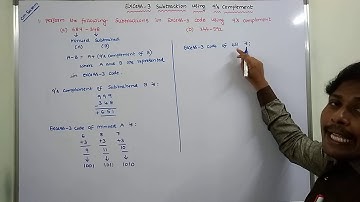 Excess-3 Subtraction using 9's Complement
1) Perform the following Subtractions in Excess-3 code using 9's complement
(a) 687 - 348
(b) 344 - 552
Minuend Subtrahend
(A) (B)
A-B = A + (9's complement of B)
where A and B are represented
in Excess-3 code.
9's Complement of Subtrahend B is:
999
- 348
651
Excess-3 Code of Minuend A is:
6 8 7
+3 +3 +3
9 11 10
1001 1011 1010
Excess-3 code of 651 is: